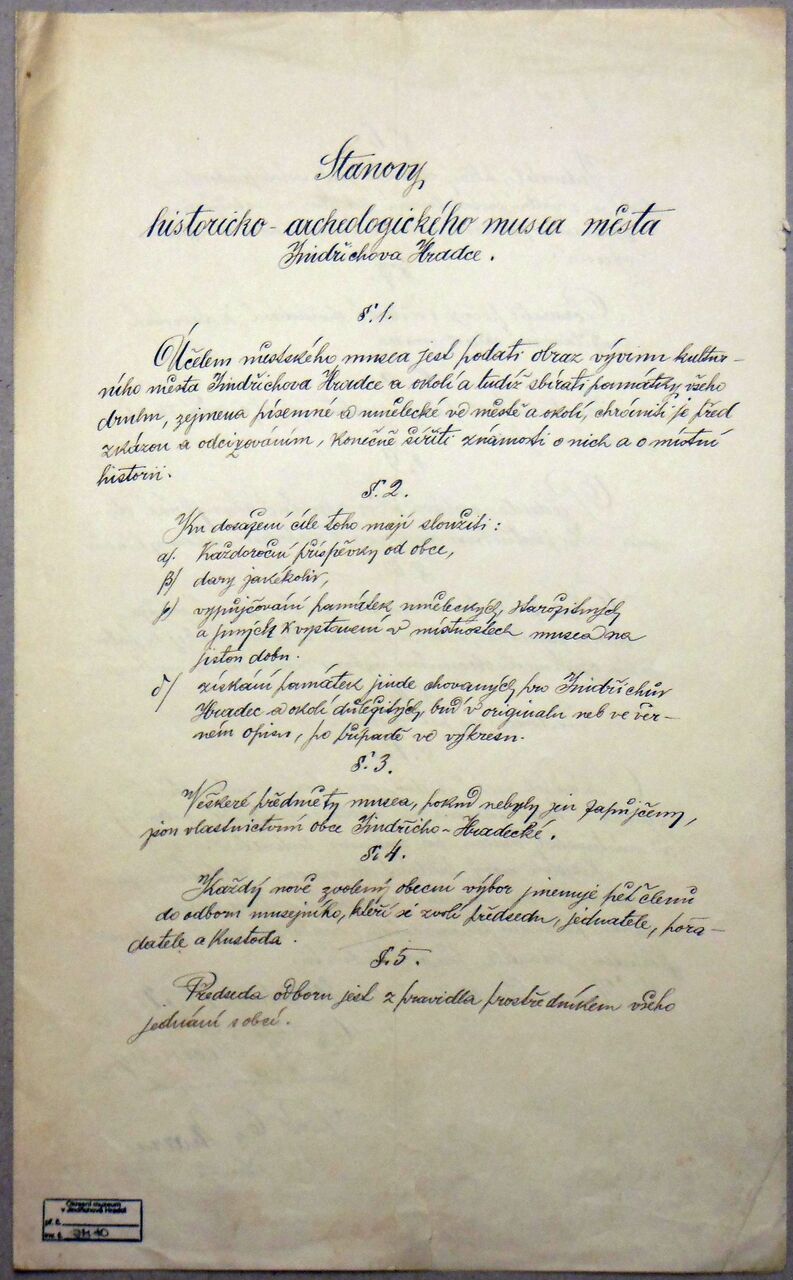 Stanovy
historicko-archeologického musea města
Jindřichova Hradce.
§. 1.
Účelem městského musea jest podati obraz vývinu kultur-
ního města Jindřichova Hradce a okolí a tudíž sbírati památky všeho
druhu, zejmena písemné a umělecké ve městě a okolí, chrániti je před
zkázou a odcizováním, konečně šířiti známosti o nich a o místní
historii.
§. 2.
Ku dosažení cíle toho mají sloužiti:
α/. Každoroční příspěvky od obce,
β/ dary jakékoliv,
γ/ vypůjčování památek uměleckých, starožitných
a jiných k vystavení v místnostech musea na
jistou dobu.
δ/ získání památek jinde chovaných pro Jindřichův
Hradec a okolí důležitých, buď v originalu neb ve věr-
ném opisu, po případě ve výkresu.
§. 3.
Veškeré předměty musea, pokud nebyly jen zapůjčeny,
jsou vlastnictvím obce Jindřicho-Hradecké.
§. 4.
Každý nově zvolený obecní výbor jmenuje pět členů
do odboru musejního, kteří si zvolí předsedu, jednatele, pořa-
datele a kustoda.
§. 5.
Předseda odboru jest z pravidla prostředníkem všeho
jednání s obcí.
Okresní muzeum
v Jindřichově Hradci
př. č.
inv. č.